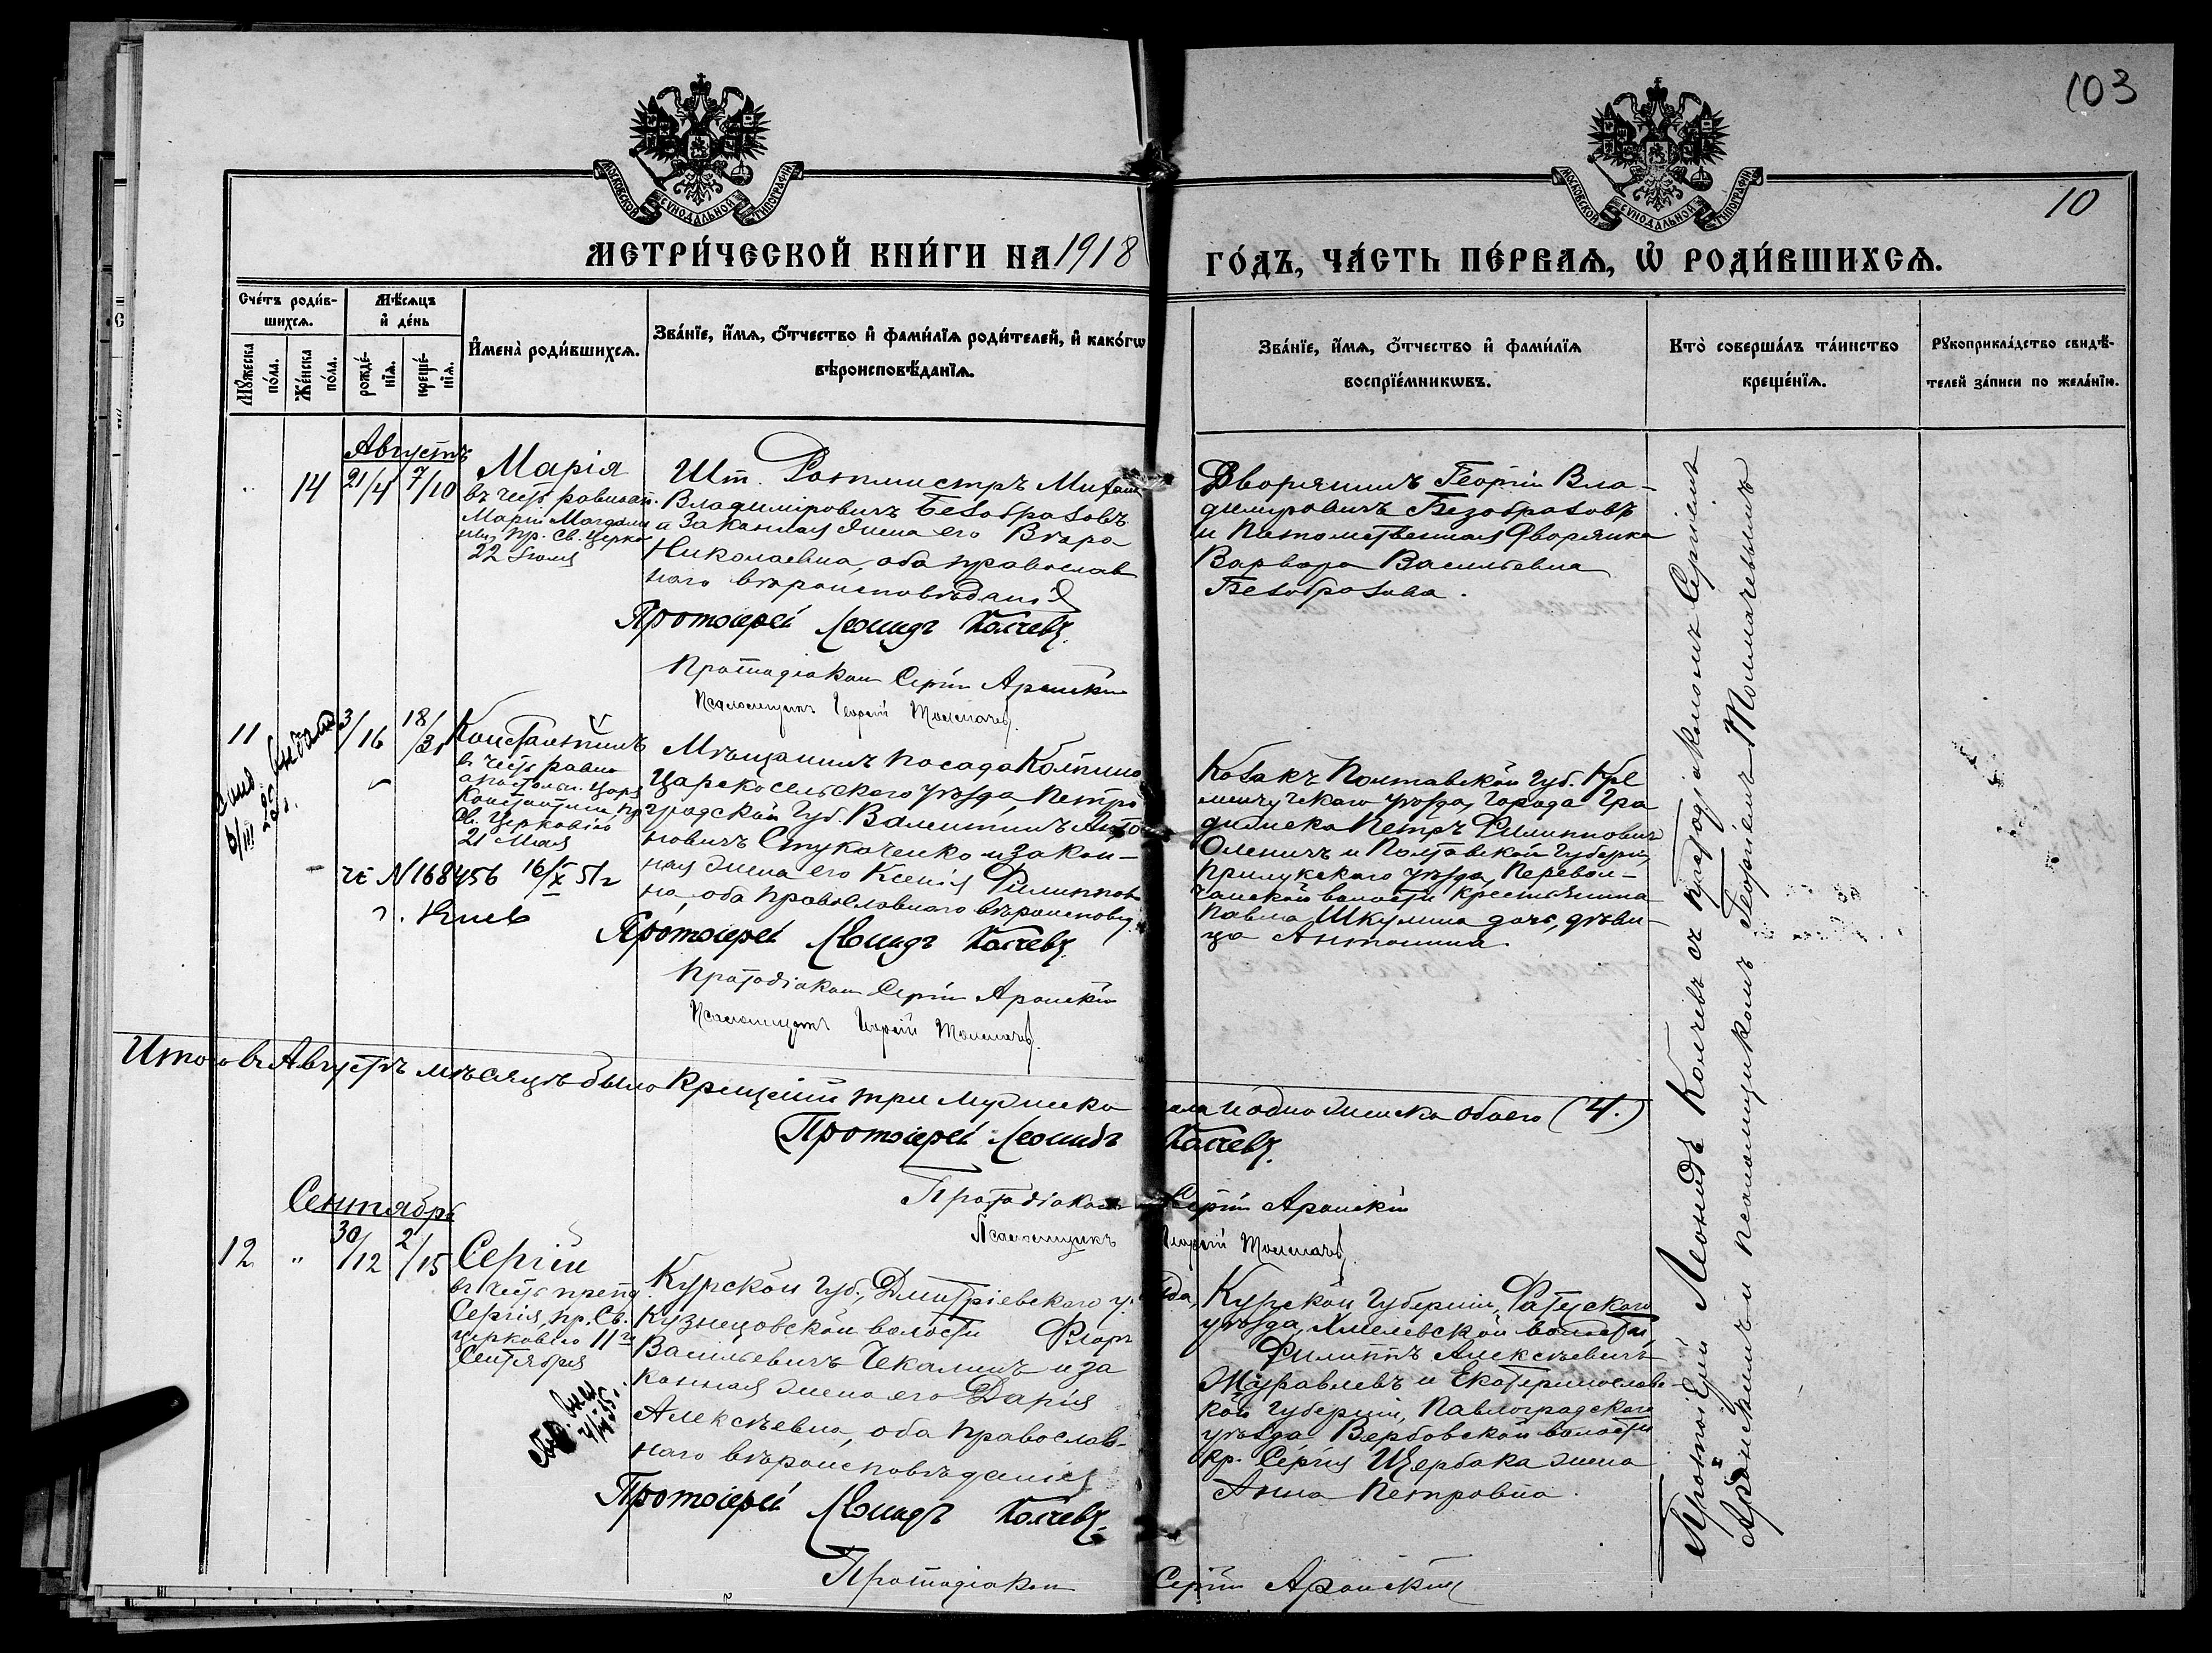 103
10
МОСКОВСКОЙ СУНОДАЛЬНОЙ ТИПОГРАФІИ
МОСКОВСКОЙ СУНОДАЛЬНОЙ ТИПОГРАФІИ
МЕТРИ́ЧЕСКОЙ КНИ́ГИ НА 1918
ГО́ДЪ, ЧА́СТЬ ПЕ́РВАѦ, Ѡ РОДИ́ВШИХСѦ.
Сче́тъ роди́в-
шихсѧ.
Мꙋ́жеска
по́ла.
Же́нска
по́ла.
Мѣ́сѧцъ
и де́нь
рожде́-
нїѧ.
креще́-
нїѧ.
Имена̀ роди́вшихсѧ.
Зва́нїе, и́мѧ, ѻ́тчество и фами́лїѧ роди́телей, и како́гѡ
вѣроисповѣ́данїѧ.
Зва́нїе, и́мѧ, ѻ́тчество и фами́лїѧ
воспрїе́мникѡвъ.
Кто̀ соверша́лъ та́инство
креще́нїѧ.
Рꙋкоприкла́дство свидѣ́-
телей за́писи по жела́нїю.
Августъ
14 21/4 7/10
Марія
въ честь равноап.
Маріи Магдали
ны, пр. Св. Церко
22 Іюля
Шт. Ротмистръ Михаил
Владиміровичъ Безобразовъ
а законная жена его Вѣра
Николаевна, оба православ
наго вѣроисповѣданія
Протоіерей Леонидъ Колчевъ.
Протодіаконъ Сергій Аронскій
Псаломщикъ Георгій Толмачевъ.
Дворянинъ Георгій Вла-
димировичъ Безобразовъ
и Потомственная Дворянка
Варвара Васильевна
Безобразова.
11 3/16 18/31
Константинъ
в честь равно
апостольн. Царя
Константина, пр
Св. Церковію
21 Мая
6/III
че N 168456 16/X 51г
г. Киев
Мѣщанинъ посада Колпино
Царскосельскаго уѣзда Петро
градской Губ. Валентинъ Анто
новичъ Стукаченко и закон-
ная жена его Ксенія Филиппов
на, оба православнаго вѣроисповѣд.
Протоіерей Леонидъ Колчевъ.
Протодіаконъ Сергій Аронскій
Псаломщикъ Георгій Толмачевъ.
Козакъ Полтавской Губ. Кре
менчугскаго уѣзда, города Гра
дижска Петръ Филипповичъ
Оленичъ и Полтавской Губерніи
Прилукскаго уѣзда, Перевол-
чанской волости крестьянина
Павла Шкулина дочь, дѣви-
ца Антонина.
Итого въ Августѣ мѣсяцѣ было Крещеній три мужеска пола и одно женска обоего (4.)
Протоіерей Леонидъ Колчевъ.
Протодіаконъ Сергій Аронскій
Псаломщикъ Георгій Толмачевъ.
Сентябрь
12 " 30/12 2/15
Сергій
въ честь препод.
Сергія, пр. Св.
церковію 11го
Сентября
Курской Губ., Дмитріевскаго уѣзда,
Кузнецовской волости Флоръ
Васильевичъ Чекалинъ и за
конная жена его Дарія
Алексѣевна, оба православ-
наго вѣроисповѣданія
Протоіерей Леонидъ Колчевъ.
Протодіаконъ Сергій Аронскій
Курской Губерніи, Фатежскаго
уѣзда, Хмелевской волости,
Филиппъ Алексѣевичъ
Журавлевъ и Екатеринославс-
кой Губерніи, Павлоградскаго
уѣзда Вербовской волости
кр. Сергія Щербака жена
Анна Петровна.
Протоіерей Леонидъ Колчевъ съ протодіакономъ Сергіемъ
Аронскимъ и псаломщикомъ Георгіемъ Толмачевымъ